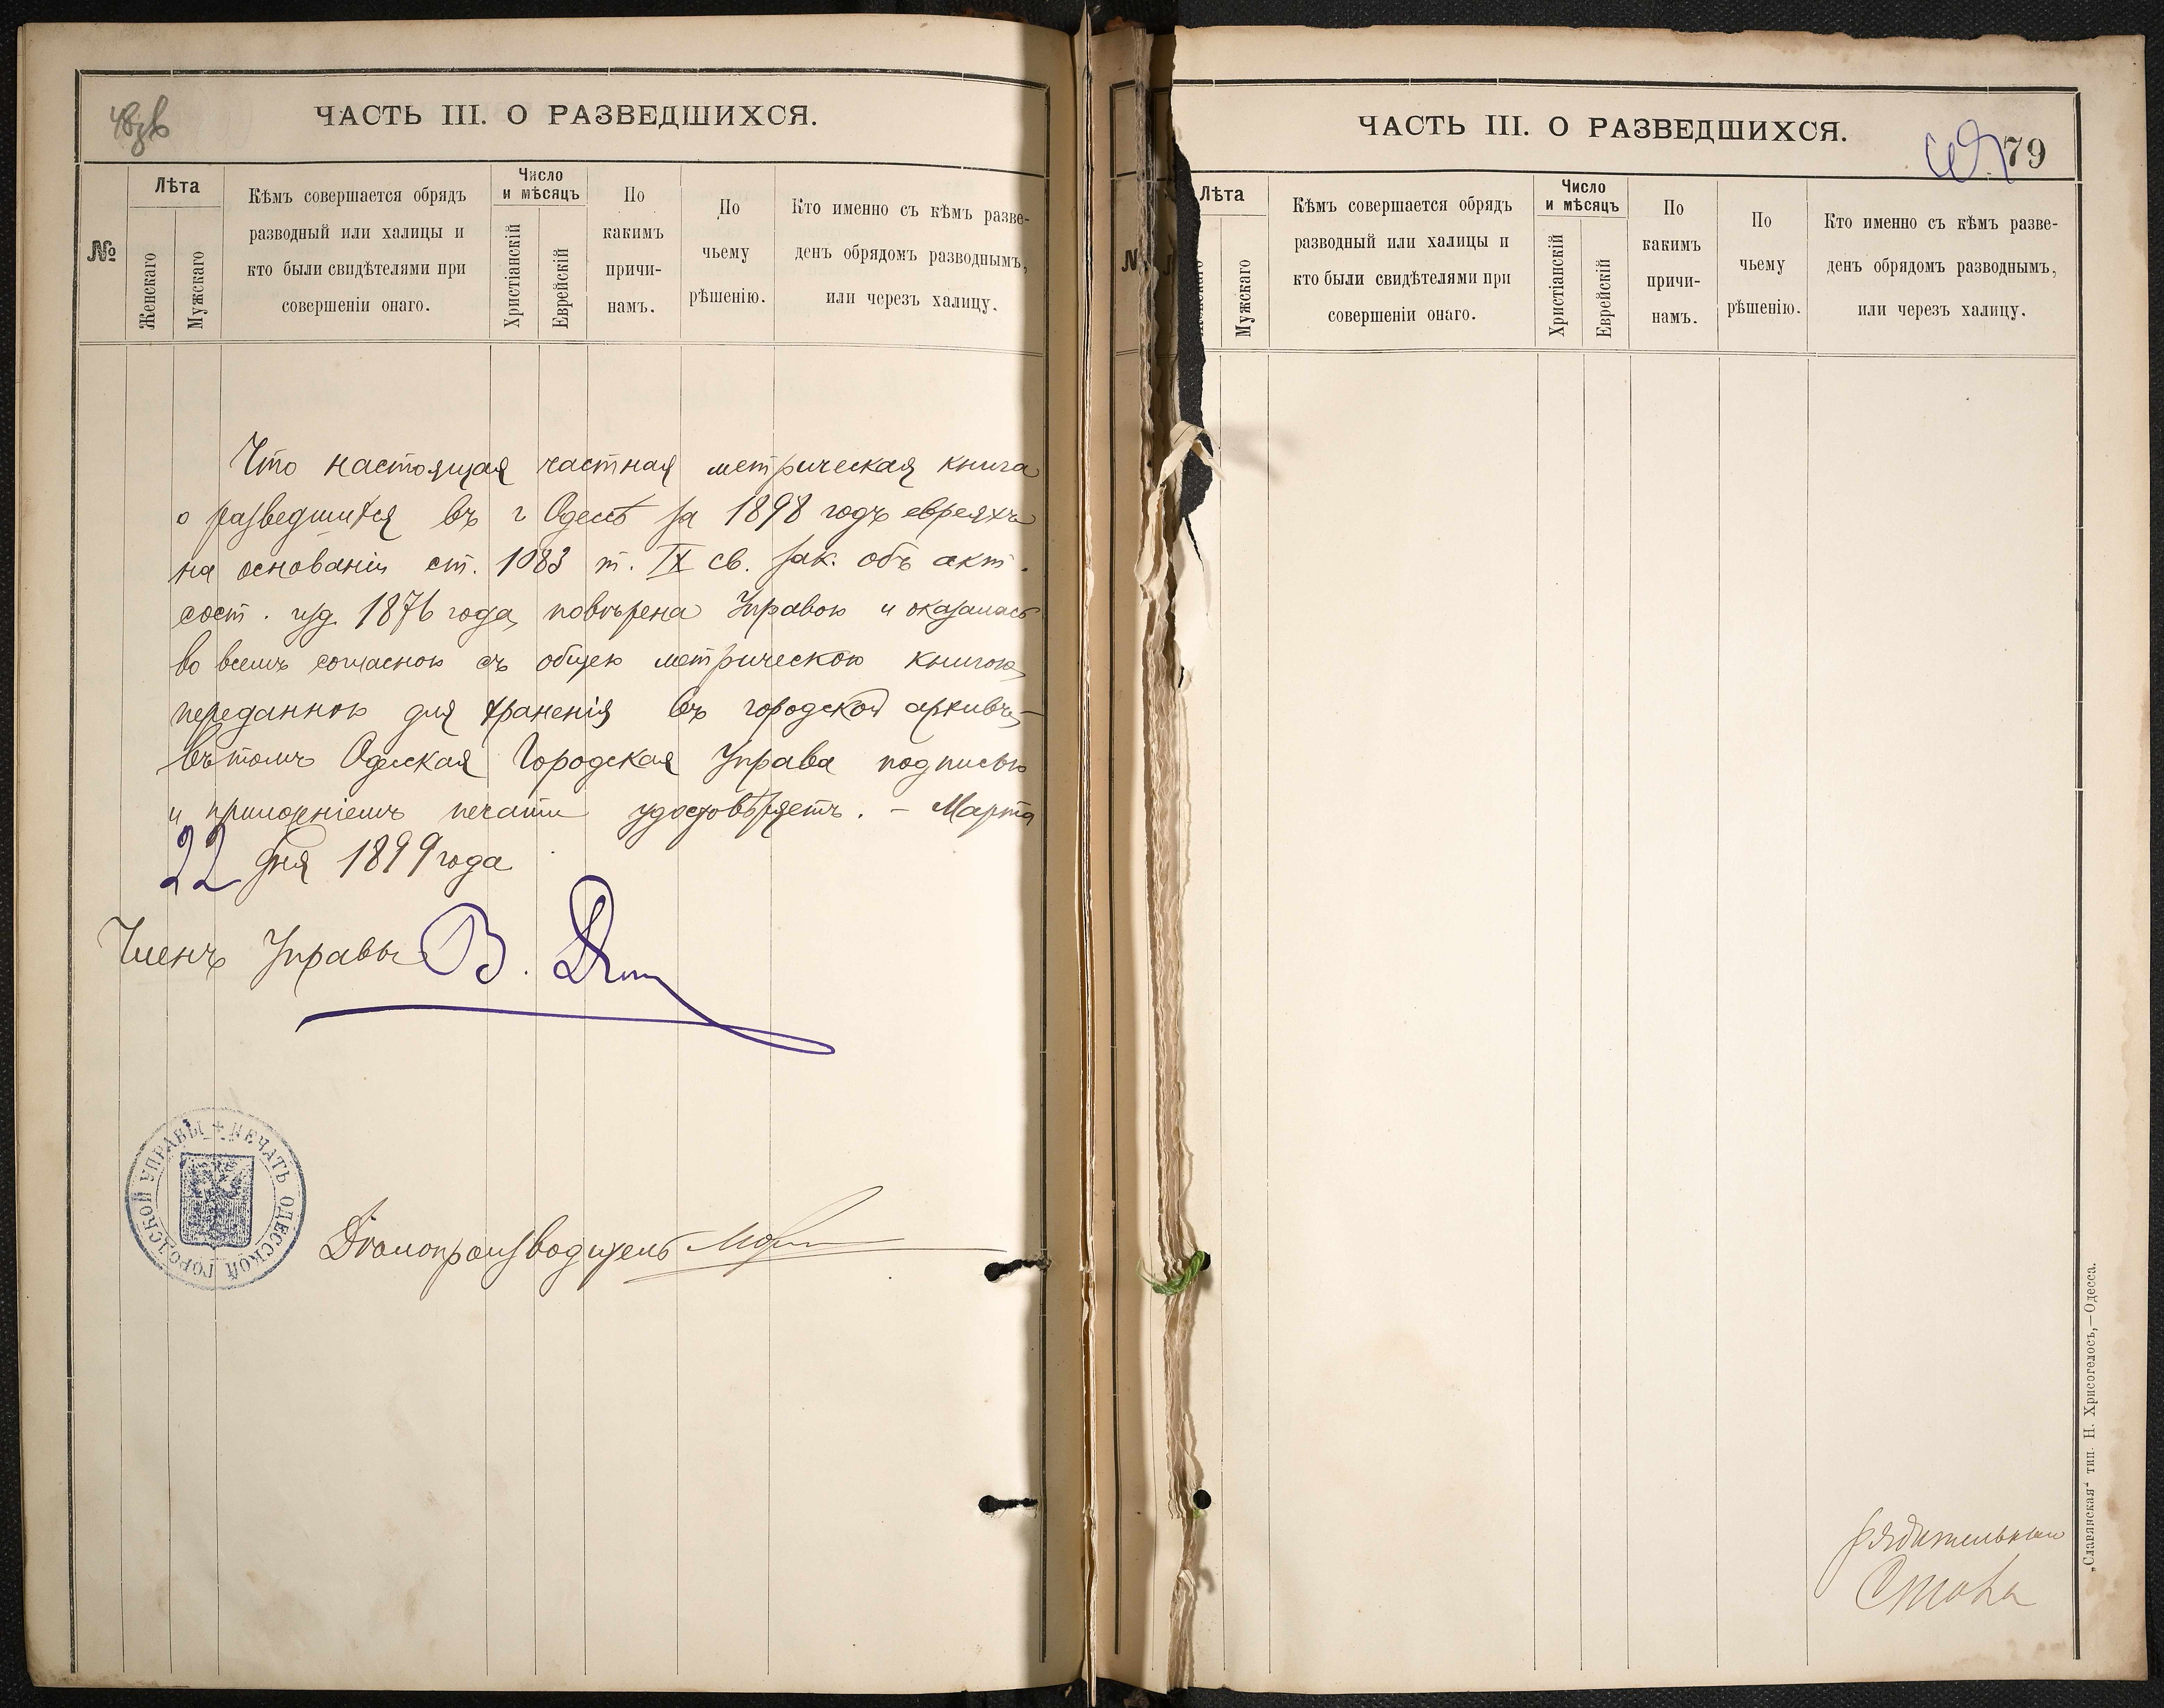 48 зв
ЧАСТЬ III. О РАЗВЕДШИХСЯ.
№
Лѣта
Женскаго
Мужскаго
Кѣмъ совершается обрядъ
разводный или халицы и
кто были свидѣтелями при
совершеніи онаго.
Число
и мѣсяцъ
Христіанскій
Еврейскій
По
какимъ
причи-
намъ.
По
чьему
рѣшенію.
Кто именно съ кѣмъ разве-
денъ обрядомъ разводнымъ,
или черезъ халицу.
Что настоящая частная метрическая книга
о разведшихся въ г Одессѣ за 1898 годъ евреяхъ
на основаніи ст. 1083 т. IX св. зак. объ акт.
сост. изд. 1876 года, повѣрена Управою и оказалась
во всемъ согласною съ общею метрическою книгою,
переданною для храненія въ городской архивъ,—
въ томъ Одесская Городская Управа подписью
и приложеніемъ печати удостовѣряетъ. – Марта
22 дня 1899 года
Членъ Управы В.
ПЕЧАТЬ ОДЕССКОЙ ГОРОДСКОЙ УПРАВЫ
Дѣлопроизводитель
ЧАСТЬ III. О РАЗВЕДШИХСЯ.
79
№
Лѣта
Женскаго
Мужскаго
Кѣмъ совершается обрядъ
разводный или халицы и
кто были свидѣтелями при
совершеніи онаго.
Число
и мѣсяцъ
Христіанскій
Еврейскій
По
какимъ
причи-
намъ.
По
чьему
рѣшенію.
Кто именно съ кѣмъ разве-
денъ обрядомъ разводнымъ,
или черезъ халицу.
„Славянская“ тип. Н. Хрисогелосъ,—Одесса.